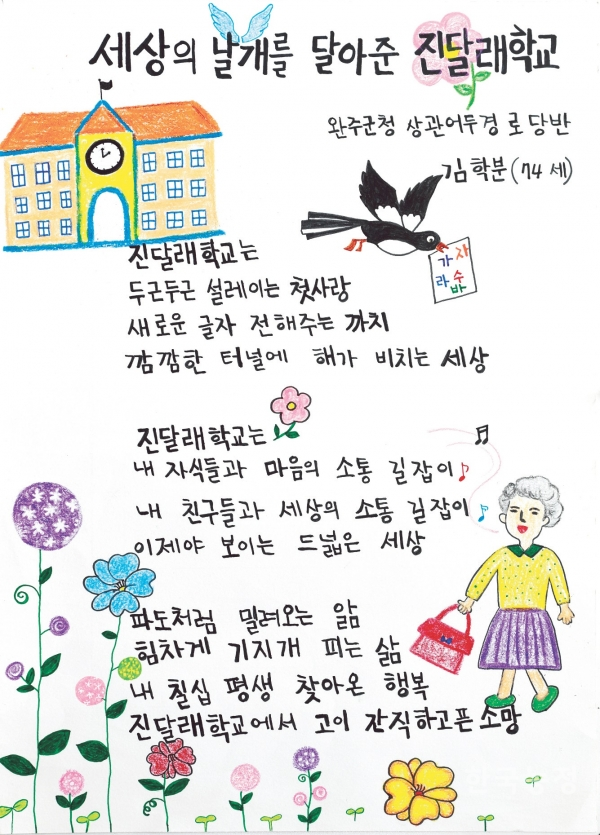 세상의 날개를 달아준 진달래학교
완주군청 상관어두경로당반
김학분(74세)
가자
라수바
진달래학교는
두근두근 설레이는 첫사랑
새로운 글자 전해주는 까치
깜깜한 터널에 해가 비치는 세상
진달래학교는
내 자식들과 마음의 소통 길잡이
내 친구들과 세상의 소통 길잡이
이제야 보이는 드넓은 세상
파도처럼 밀려오는 앎
힘차게 기지개 피는 삶
내 칠십 평생 찾아온 행복
진달래학교에서 고이 간직하고픈 소망